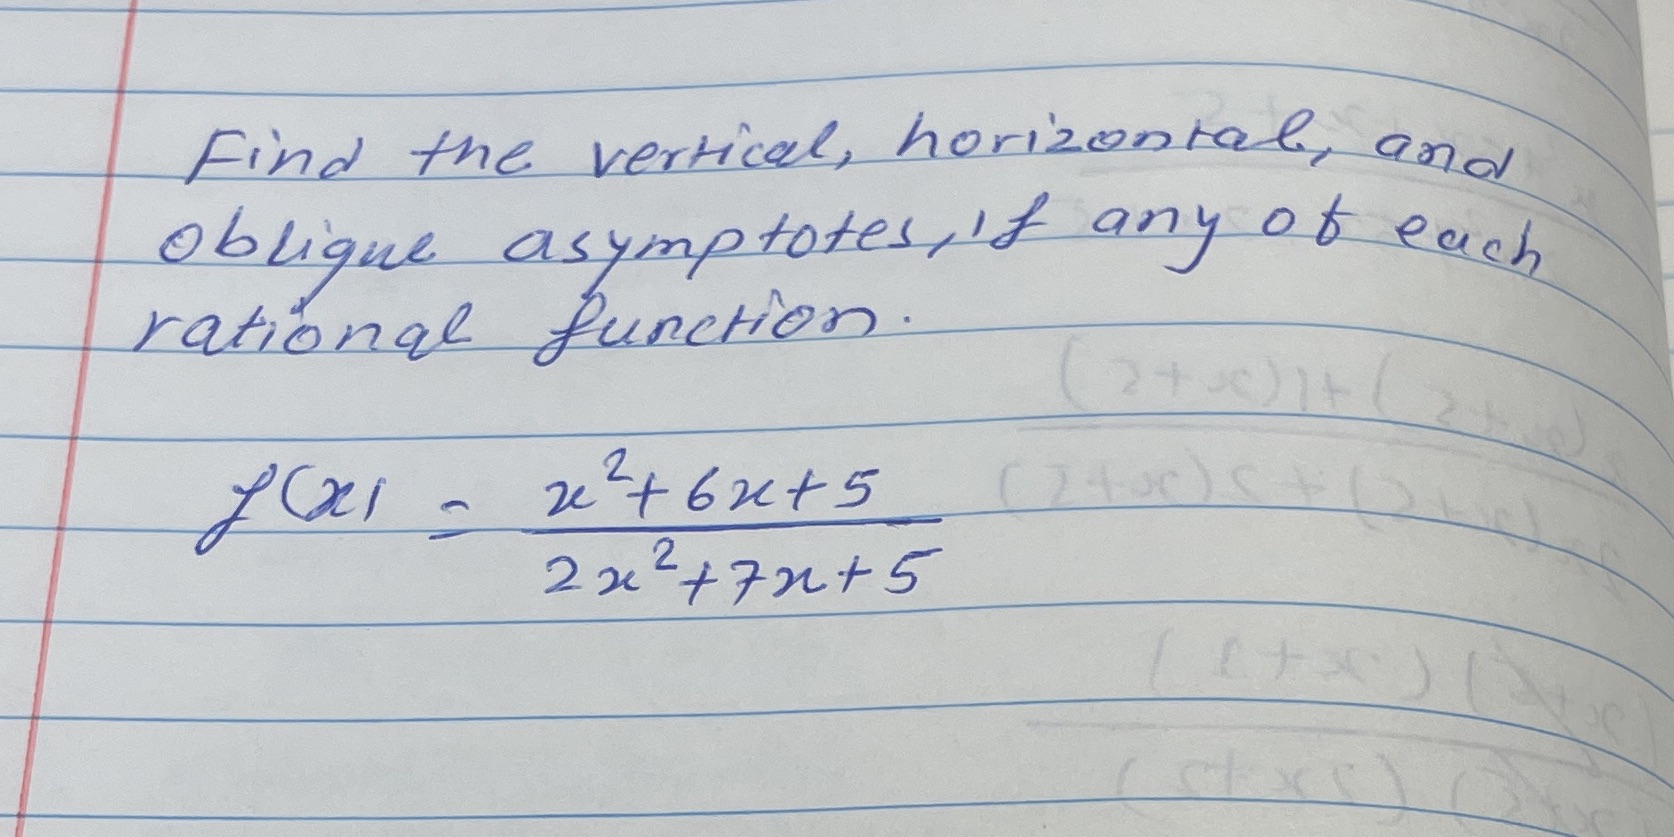 Find the vertical, horizontal, and
oblique asymptotes, if any of each
rational function.
f(x) = x²+6x+5
2x²+7x+5